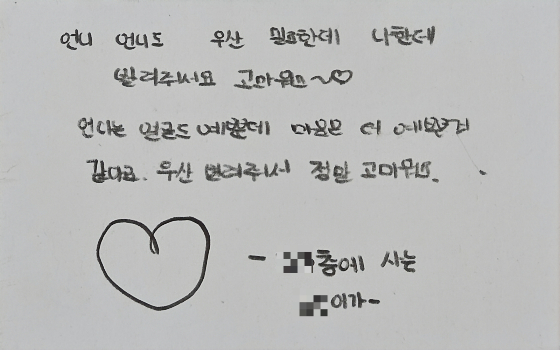 언니 언니도 우산 필요한데 나한테
빌려주서요 고마워요~♡
언니는 얼굴도 예쁜데 마음은 더 예쁜거
같아요. 우산 빌려주서 정말 고마워요.
- 층에 사는
이가-